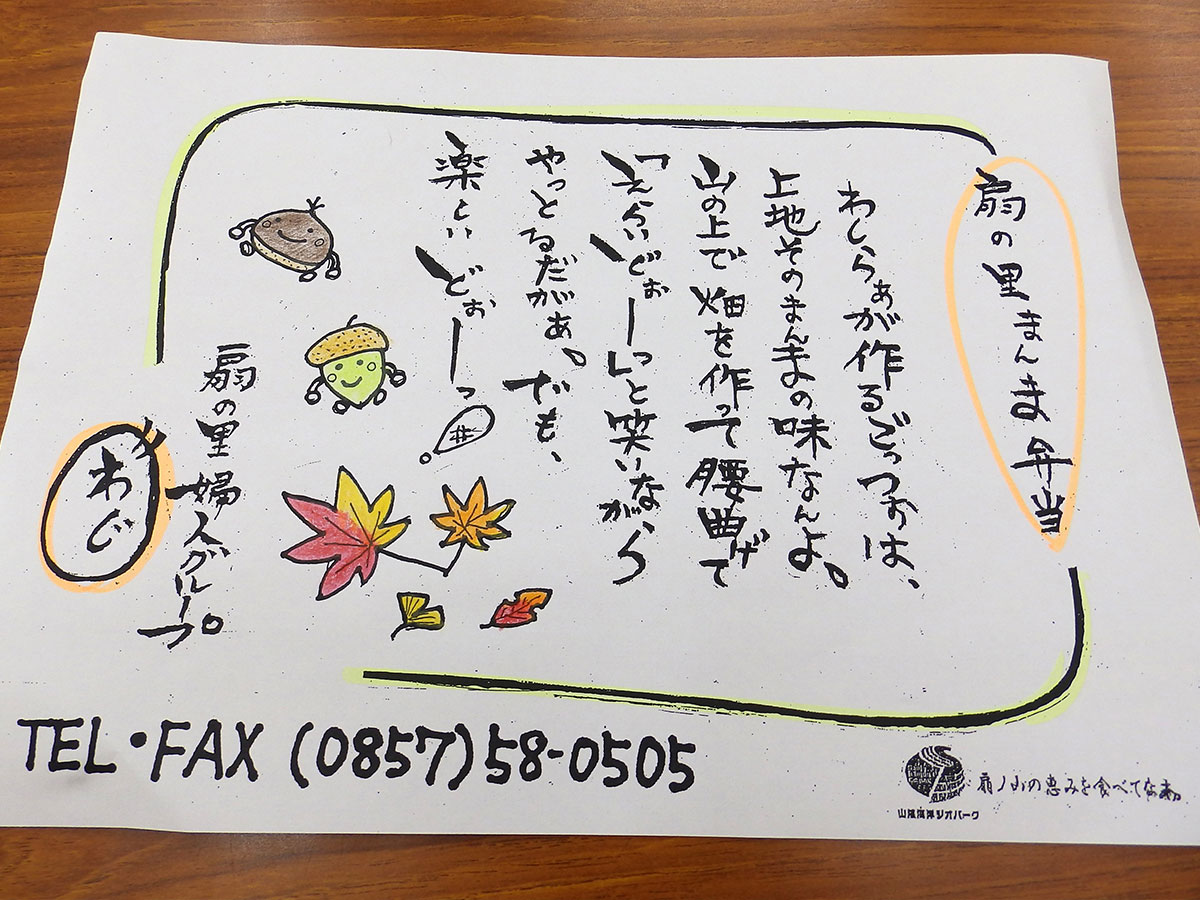 扇の里まんま弁当
わしらぁが作るごっつぉは、
上地そのまんまの味なんよ。
山の上で畑を作って腰曲げて
「えらいどぉーっ」と笑いながら
やっとるだがぁ。でも、
楽しいどぉーっ
扇の里婦人グループ
わじ
TEL・FAX (0857)58-0505
扇ノ山の恵みを食べてなぁ。
山陰海岸ジオパーク